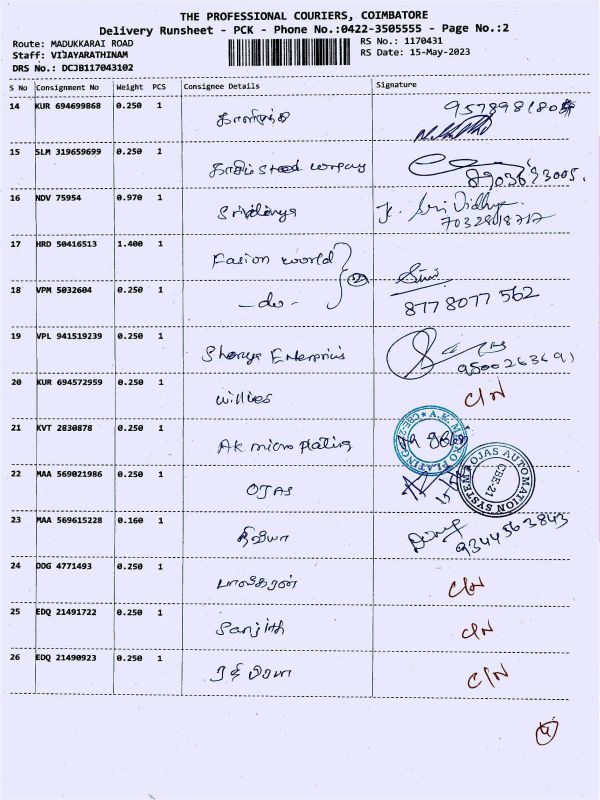 THE PROFESSIONAL COURIERS, COIMBATORE
Delivery Runsheet - PCK - Phone No.:0422-3505555 - Page No.:2
Route: MADUKKARAI ROAD
RS No.: 1170431
Staff: VIJAYARATHINAM
RS Date: 15-May-2023
DRS No.: DCJB117043102
S No Consignment No Weight PCS Consignee Details Signature
14 KUR 694699868 0.250 1
15 SLM 319659699 0.250 1 8903693005.
16 NDV 75954 0.970 1 Srividhya K. Sri Vidhya.
17 HRD 50416513 1.400 1 Fasion world
18 VPM 5032604 0.250 1 - do - 8778077562
19 VPL 941519239 0.250 1 Shonya Enterprises 9500263691
20 KUR 694572959 0.250 1 willies C/N
21 KVT 2830878 0.250 1 AK micro plating A.K. MICRO PLATING CBE-21
22 MAA 569021986 0.250 1 OJAS OJAS AUTOMATION SYSTEM CBE-21
23 MAA 569615228 0.160 1 திவ்யா 9344563843
24 DDG 4771493 0.250 1 பாஸ்கரன் C/N
25 EDQ 21491722 0.250 1 Sanjith C/N
26 EDQ 21490923 0.250 1 ரதி பிரயா C/N
4